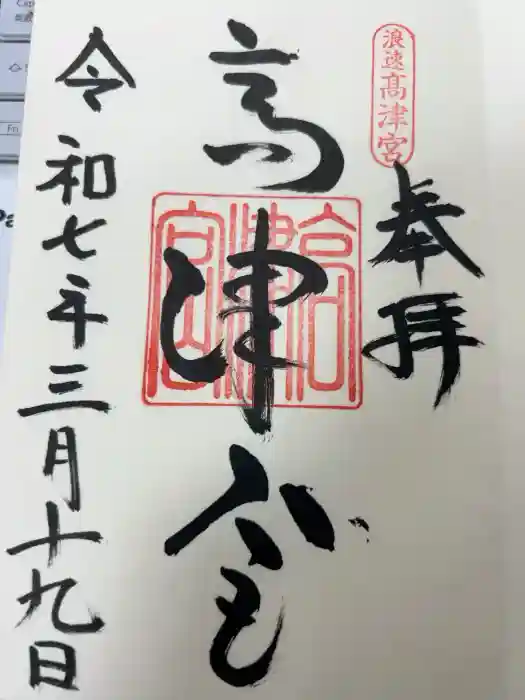 浪速高津宮
奉拝
高津宮
令和七年三月十九日